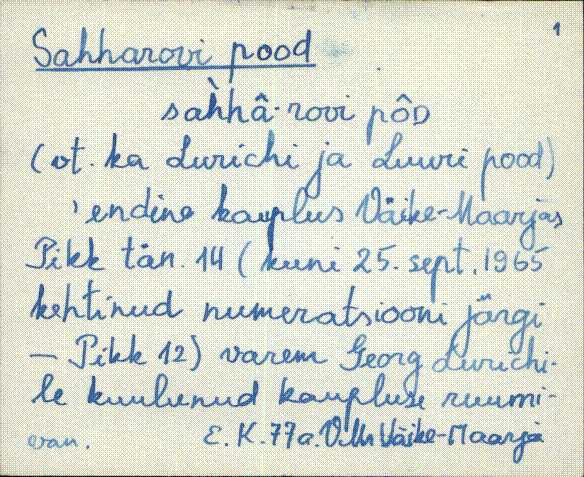 1
Sahharovi pood
sàhhâ·rovi pôD
(vt. ka Lurichi ja Luuri pood)
'endine kauplus Väike-Maarjas
Pikk tän. 14 (kuni 25. sept. 1965
kehtinud numeratsiooni järgi
— Pikk 12) varem Georg Lurichi-
le kuulunud kaupluse ruumi-
E. K. 77a. V.M. Väike-Maarja